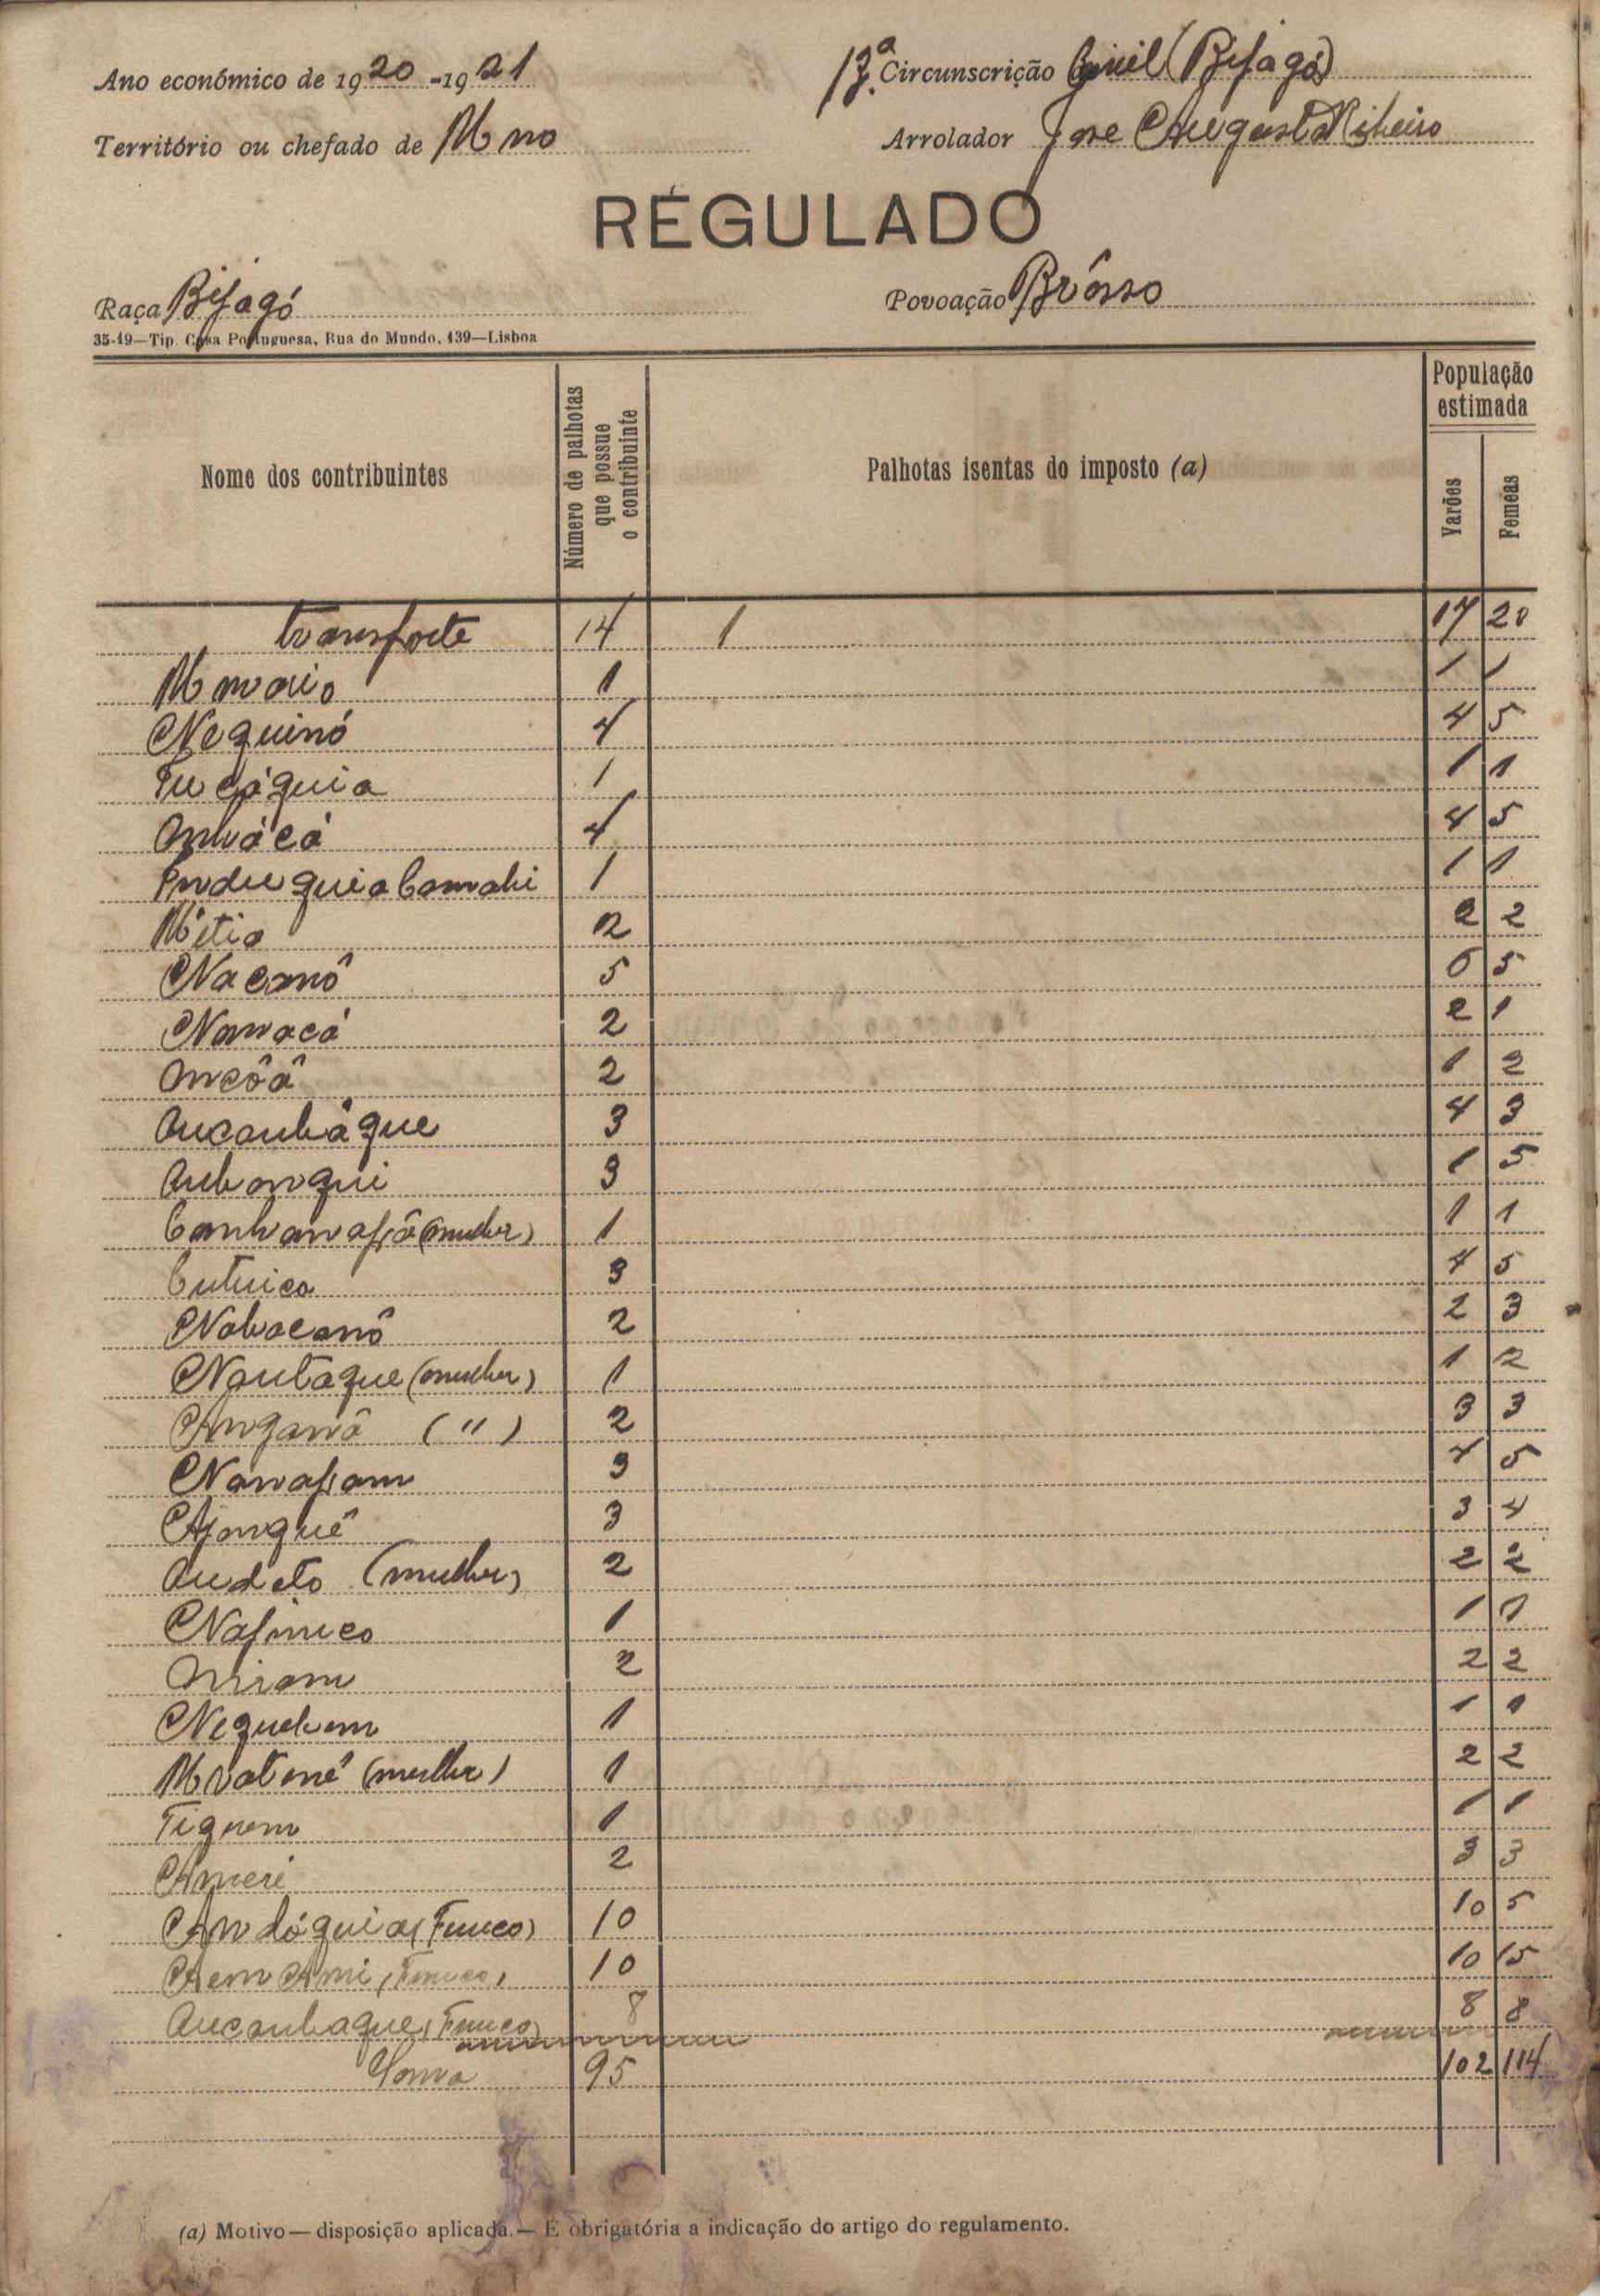 Ano económico de 1920-1921
13.ª Circunscrição Civil (Bijagó)
Território ou chefado de Uno
Arrolador José Augusto Ribeiro
RÉGULADO
Raça Bijagó
Povoação Brósso
35-19—Tip. Casa Portuguesa, Rua do Mundo, 139—Lisboa
Nome dos contribuintes
Número de palhotas que possue o contribuinte
Palhotas isentas do imposto (a)
População estimada
Varões
Femeas
transporte 14 1 17 20
1 1 1
Nequinó 4 4 5
1 1 1
4 4 5
1 1 1
2 2 2
Nacanô 5 6 5
Nanacá 2 2 1
Oncôâ 2 1 2
Aucanbáque 3 4 3
Aubonqui 3 1 5
(mulher) 1 1 1
3 4 5
Nabacanô 2 2 3
Nautaque (mulher) 1 1 2
Anganô ( " ) 2 3 3
3 4 5
Ajonquê 3 3 4
Audeto (mulher) 2 2 2
1 1 1
2 2 2
Nequebem 1 1 1
(mulher) 1 2 2
1 1 1
2 3 3
Andóquia (Funco) 10 10 5
(Funco) 10 10 15
Aucanbaque (Funco) 8 8 8
Soma 95 102 114
(a) Motivo — disposição aplicada. — É obrigatória a indicação do artigo do regulamento.